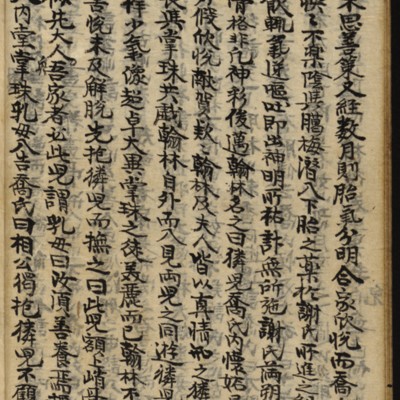 未思善策又經數月則胎氣分明合家欣悅而喬
〻不樂陰與臘梅潛入下胎之藥於謝氏所進之
飲輒氣逆嘔吐即出神明所祐計無所施謝氏滿朔
骨格非凡神彩俊邁翰林名之曰獜兒喬氏內懷妬
外假欣悅敵賀款〻翰林及夫人皆以真情而獲
長與掌珠共戱翰林自外而入見兩兒之同遊獜兒
少氣像超卓大異掌珠之徒美麗而已翰林不
喜悅未及解脫先抱獜兒而撫之曰此兒額上骨
似先大人吾家者必此兒謂乳母曰汝須善養焉
內掌珠乳母入告喬氏曰相公獨抱獜兒不顧